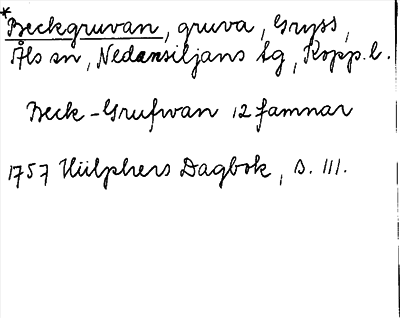 *Beckgruvan, gruva, Gryss,
Åls sn, Nedansiljans tg, Kopp. l.
Beck-Grufwan 12 famnar
1757 Hülphers Dagbok, s. 111.